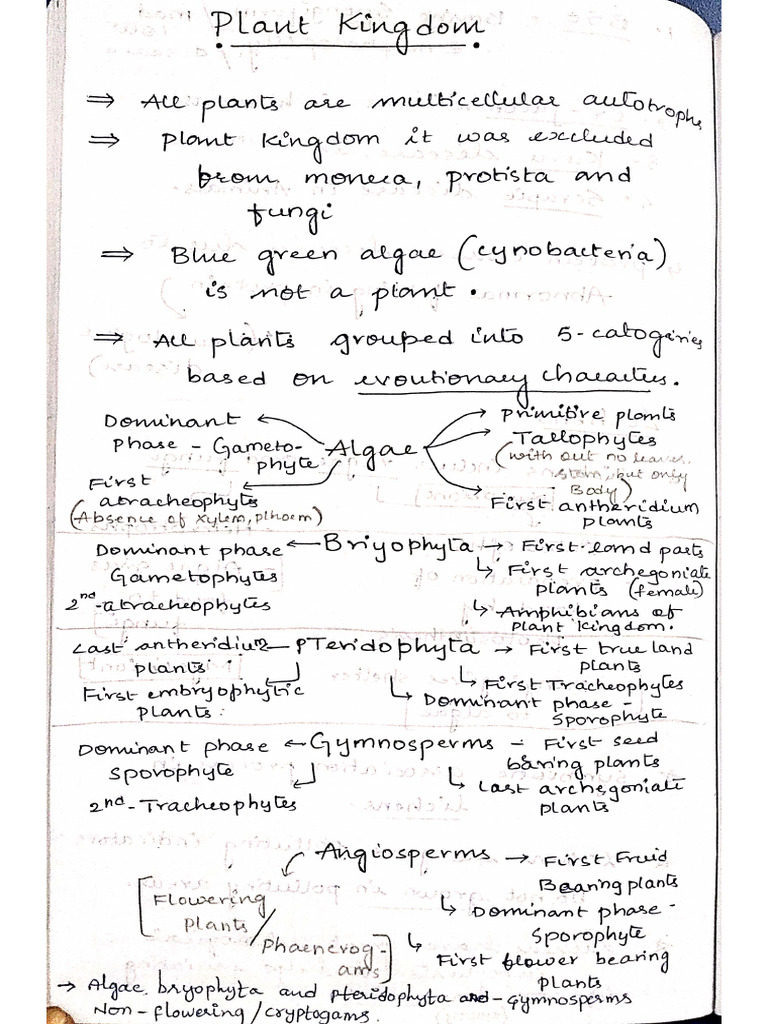 Plant Kingdom
⇒ All plants are multicellular autotrophs
⇒ Plant Kingdom it was excluded
from monera, protista and
fungi
⇒ Blue green algae (cynobacteria)
is not a plant.
⇒ All plants grouped into 5-catogiries
based on evoutionary characters.
Dominant
phase - Gameto-
phyte
First
atracheophytes
(Absence of xylem, plhoem)
Algae
Primitive plants
Tallophytes
(with out no leaves
stem, but only
Body)
First antheridium
plants
Dominant phase
Gametophytes
2nd-atracheophytes
Briyophyta
First land parts
First archegoniate
plants (female)
Amphibians of
plant kingdom.
Last antheridium
plants
First embryophytic
plants
PTeridophyta
First true land
plants
First Tracheophytes
Dominant phase -
Sporophyte
Dominant phase
Sporophyte
2nd-Tracheophytes
Gymnosperms
First seed
baring plants
Last archegoniate
plants
Angiosperms
[Flowering
plants/
Phaenerog-
ams]
First Fruid
Bearing plants
Dominant phase -
Sporophyte
First flower bearing
plants
→ Algae, bryophyta and pteridophyta and - Gymnosperms
Non - flowering / cryptogams.